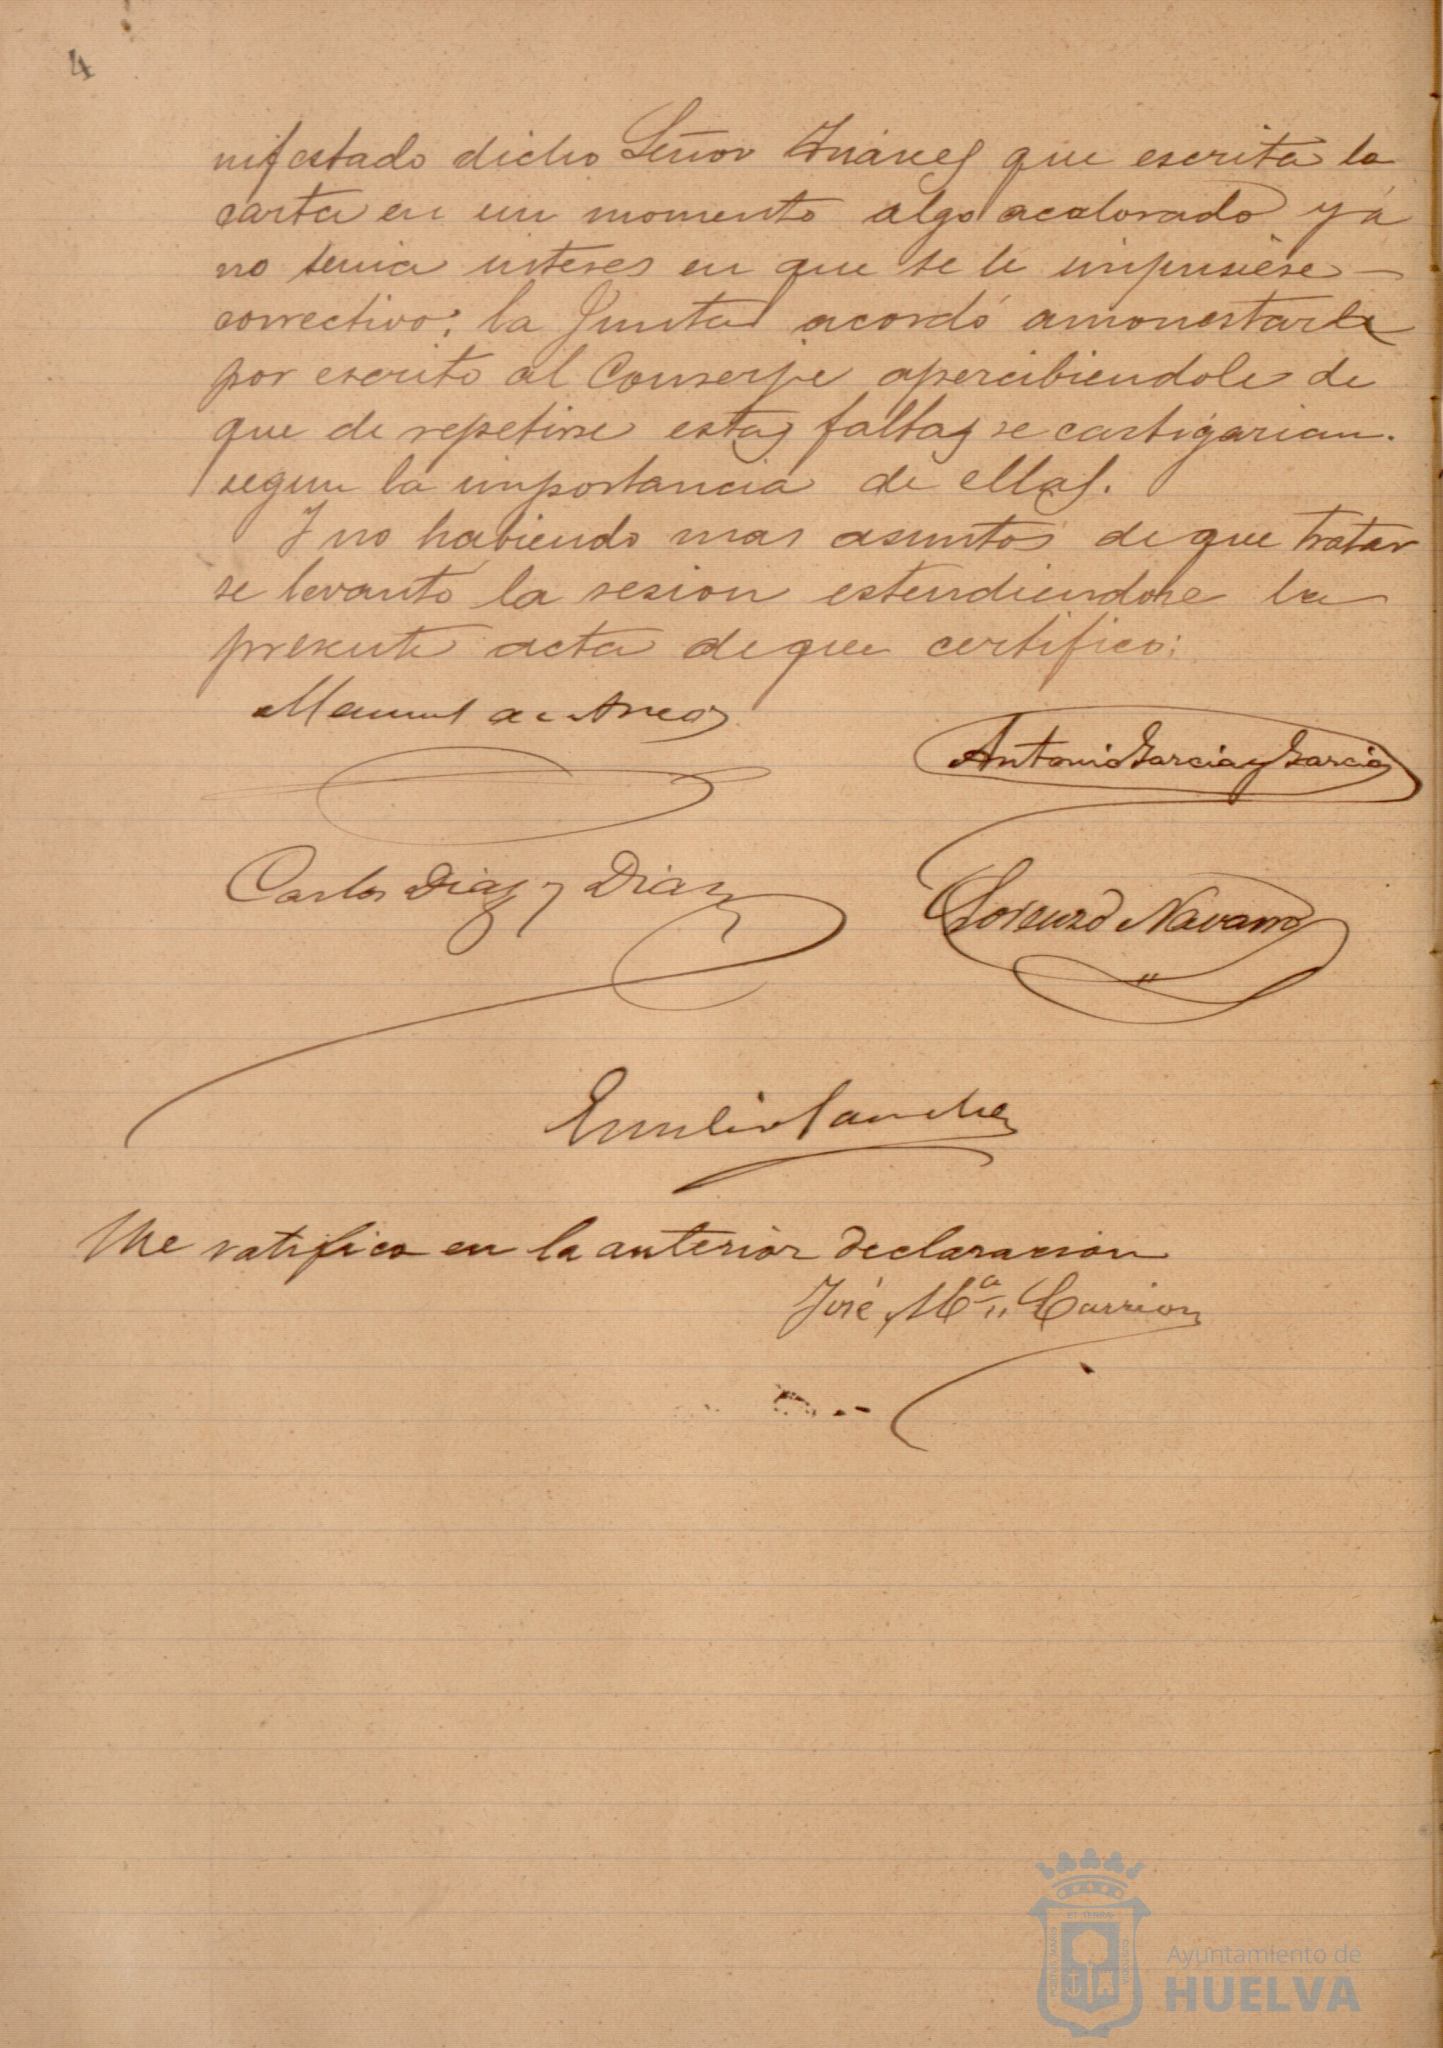 4
nifestado dicho Señor Suárez que escrita la
carta en un momento algo acalorado yá
no tenia interes en que se le impusiese
correctivo; la Junta acordó amonestarle
por escrito al Conserje apercibiendole de
que de repetirse estas faltas se castigarian
segun la importancia de ellas.
Y no habiendo mas asuntos de que tratar
se levantó la sesion estendiendose la
presente acta de que certifico:
Manuel de
Antonio Garcia y Garcia
Carlos Diaz y Diaz
Lorenzo Navarro
Emilio Sanchez
Me ratifico en la anterior declaracion
José Mª Carrion
PORTUS MARIS
ET TERRAE
CUSTODIA
Ayuntamiento de
HUELVA